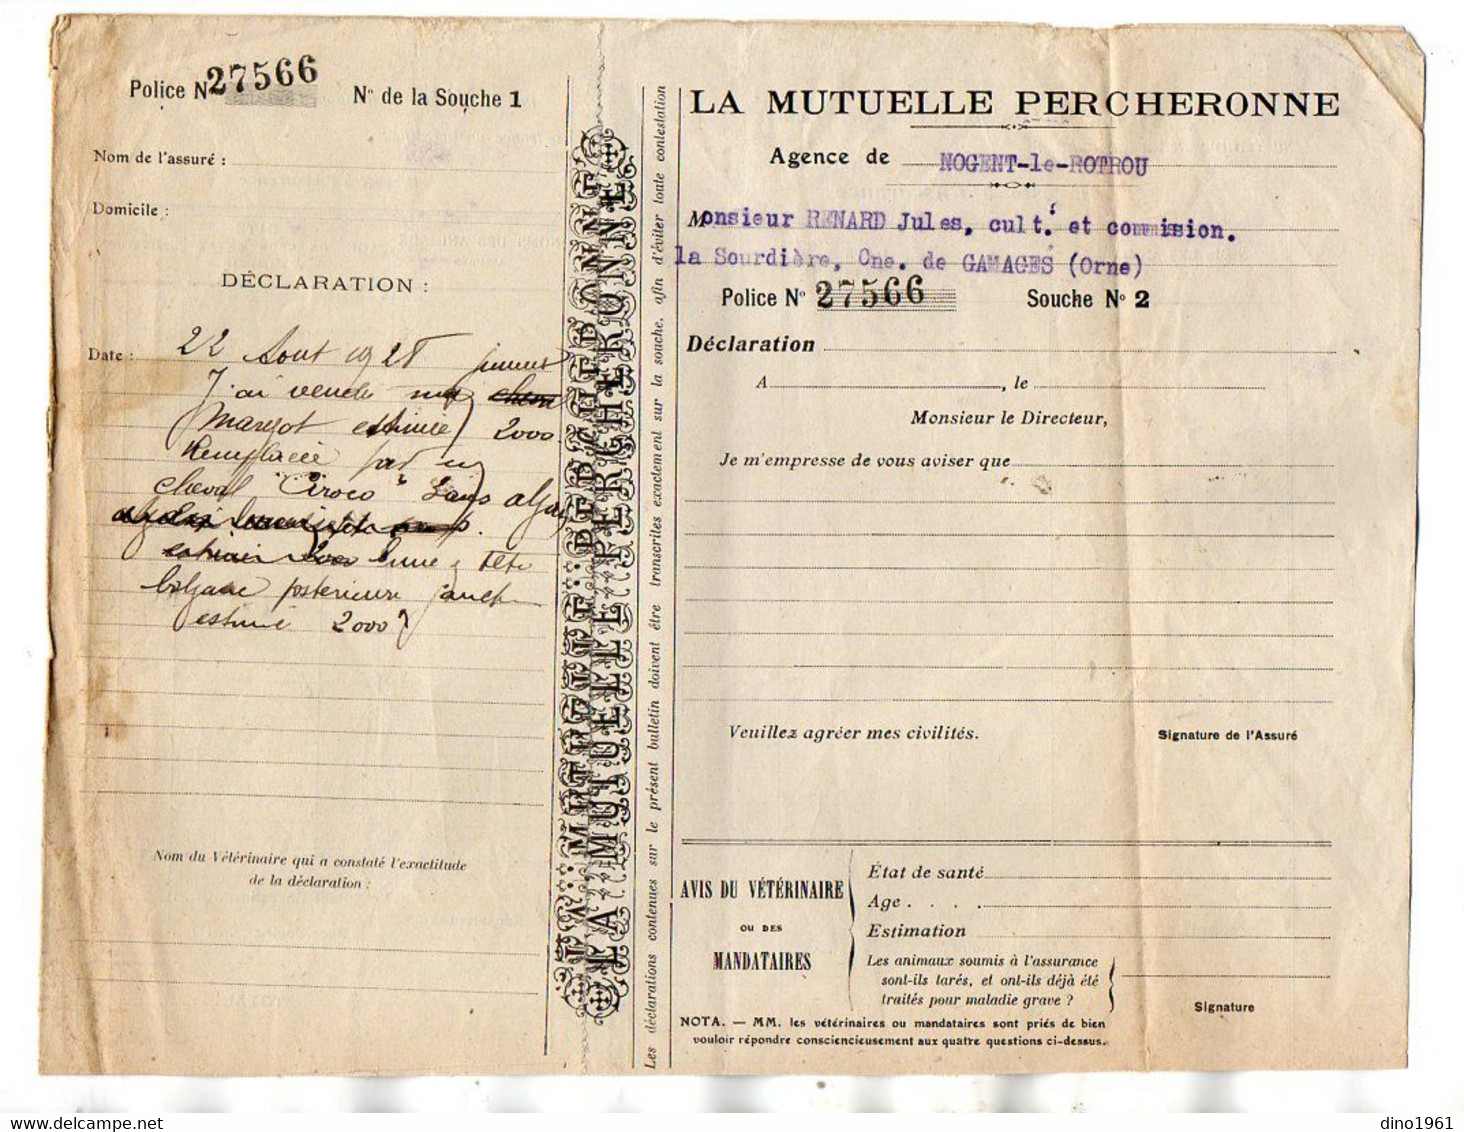 Police N° 27566
N° de la Souche 1
Nom de l'assuré :
Domicile :
DÉCLARATION :
Date : 22 Aout 1928
jument
J'ai vendu ma
Margot estimée 2000
Remplacée par un
cheval "Ciroco" 3 ans
tête
balzane postérieure
estimé 2000
Nom du Vétérinaire qui a constaté l'exactitude
de la déclaration :
LA MUTUELLE PERCHERONNE
Les déclarations contenues sur le présent bulletin doivent être transcrites exactement sur la souche, afin d'éviter toute contestation
LA MUTUELLE PERCHERONNE
Agence de NOGENT-le-ROTROU
Monsieur RENARD Jules, cult. et commission.
la Sourdière, Cne. de GAMAGES (Orne)
Police N° 27566 Souche N° 2
Déclaration
A , le
Monsieur le Directeur,
Je m'empresse de vous aviser que
Veuillez agréer mes civilités.
Signature de l'Assuré
AVIS DU VÉTÉRINAIRE
OU DES
MANDATAIRES
État de santé
Age . . . .
Estimation
Les animaux soumis à l'assurance
sont-ils tarés, et ont-ils déjà été
traités pour maladie grave ?
Signature
NOTA. — MM. les vétérinaires ou mandataires sont priés de bien
vouloir répondre consciencieusement aux quatre questions ci-dessus.
dino1961